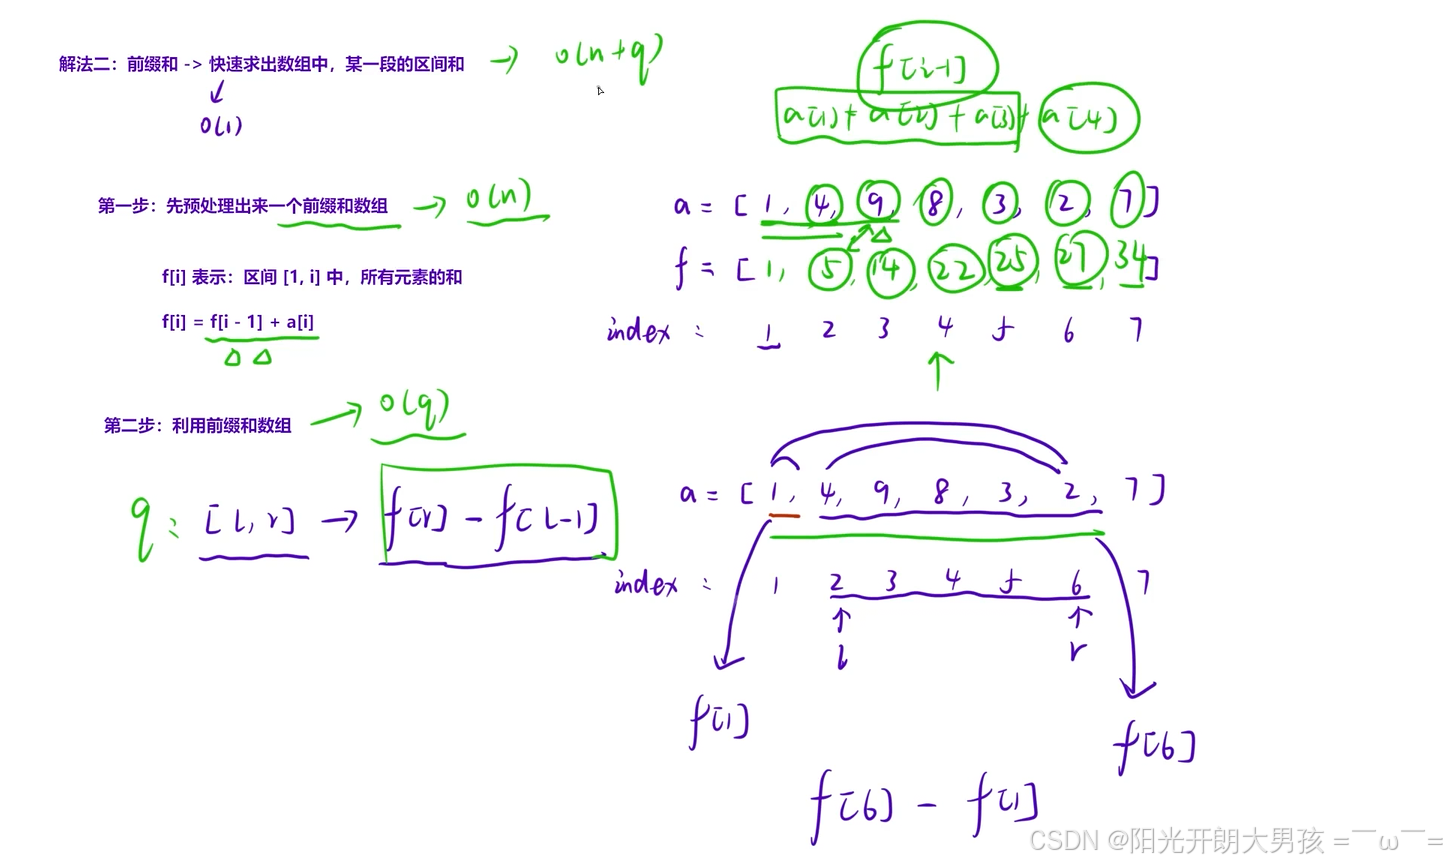 解法二：前缀和 -> 快速求出数组中，某一段的区间和 → O(n+q)
O(1)
f[i-1]
a[1] + a[2] + a[3] + a[4]
第一步：先预处理出来一个前缀和数组 → O(n)
a = [1, 4, 9, 8, 3, 2, 7]
f = [1, 5, 14, 22, 25, 27, 34]
f[i] 表示：区间 [1, i] 中，所有元素的和
f[i] = f[i - 1] + a[i]
index : 1 2 3 4 5 6 7
第二步：利用前缀和数组 → O(q)
q : [l, r] → f[r] - f[l-1]
a = [1, 4, 9, 8, 3, 2, 7]
index : 1 2 3 4 5 6 7
l r
f[1]
f[6]
f[6] - f[1]
CSDN @阳光开朗大男孩 =￣ω￣=